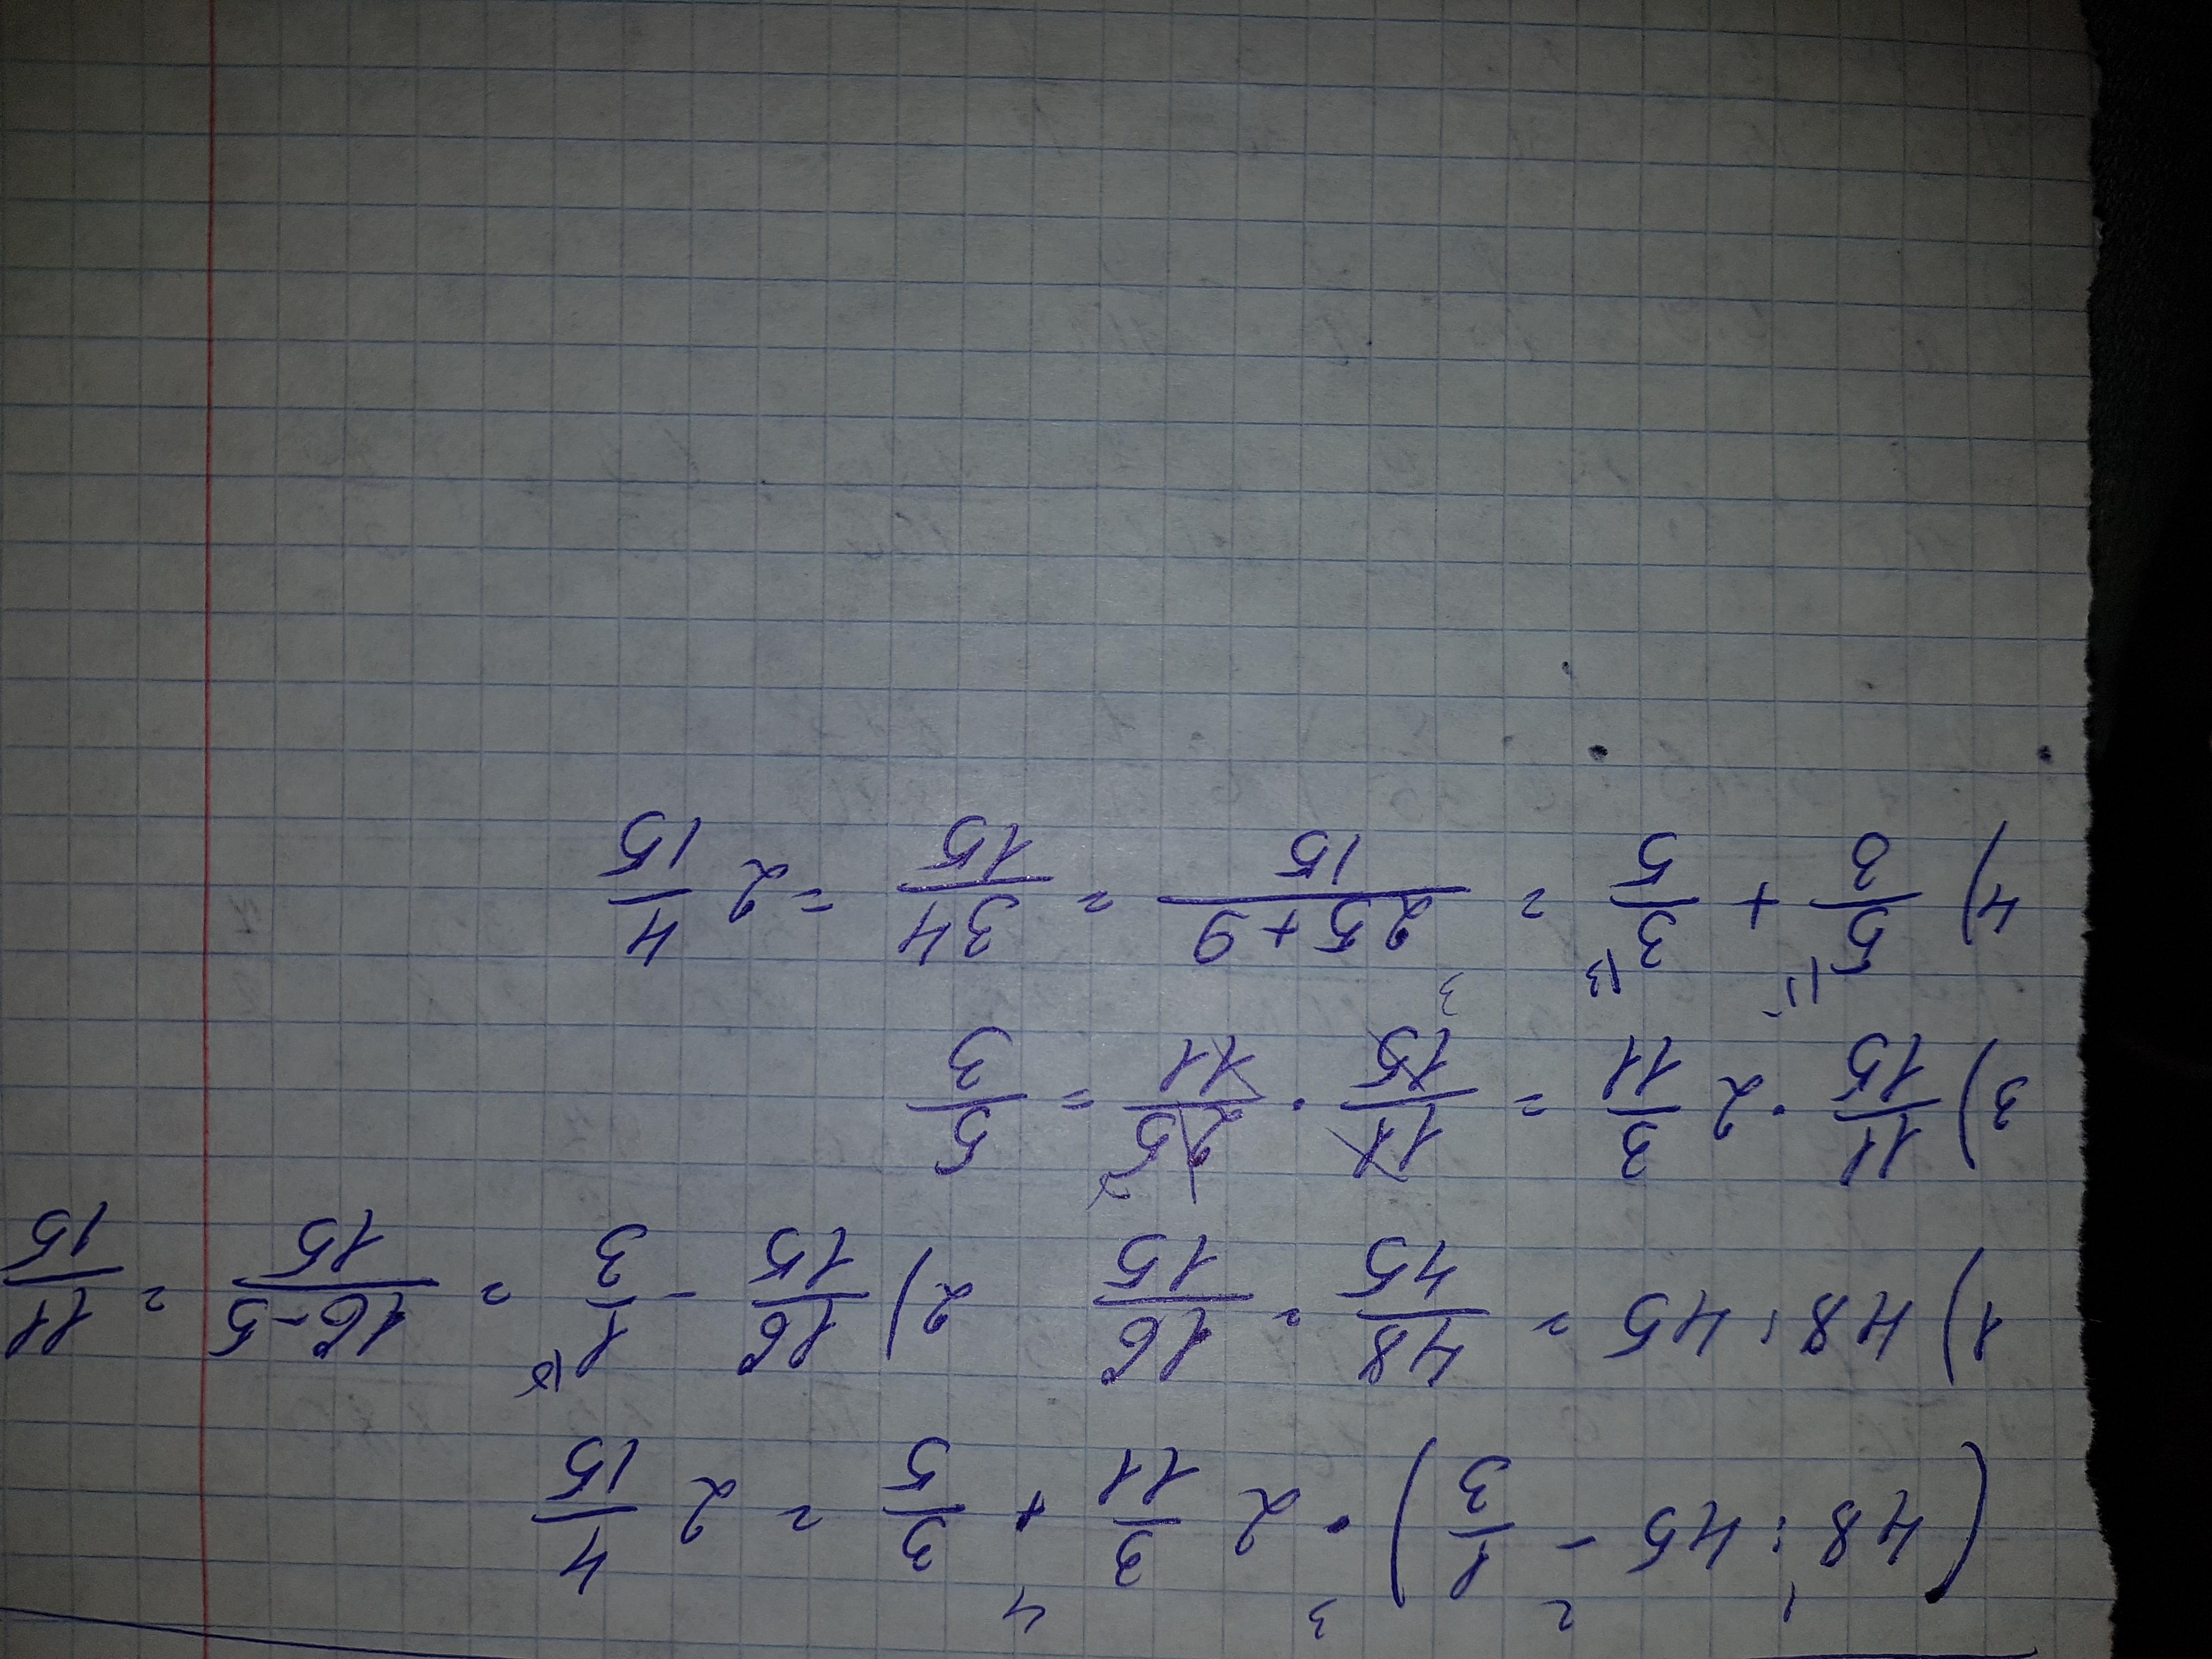 (48 : 45 - 1/3) · 2 3/11 + 3/5 = 2 4/15
1) 48 : 45 = 48/45 = 16/15 2) 16/15 - 1/3 = 16-5/15 = 11/15
3) 11/15 · 2 3/11 = 11/15 · 25/11 = 5/3
4) 5/3 + 3/5 = 25+9/15 = 34/15 = 2 4/15